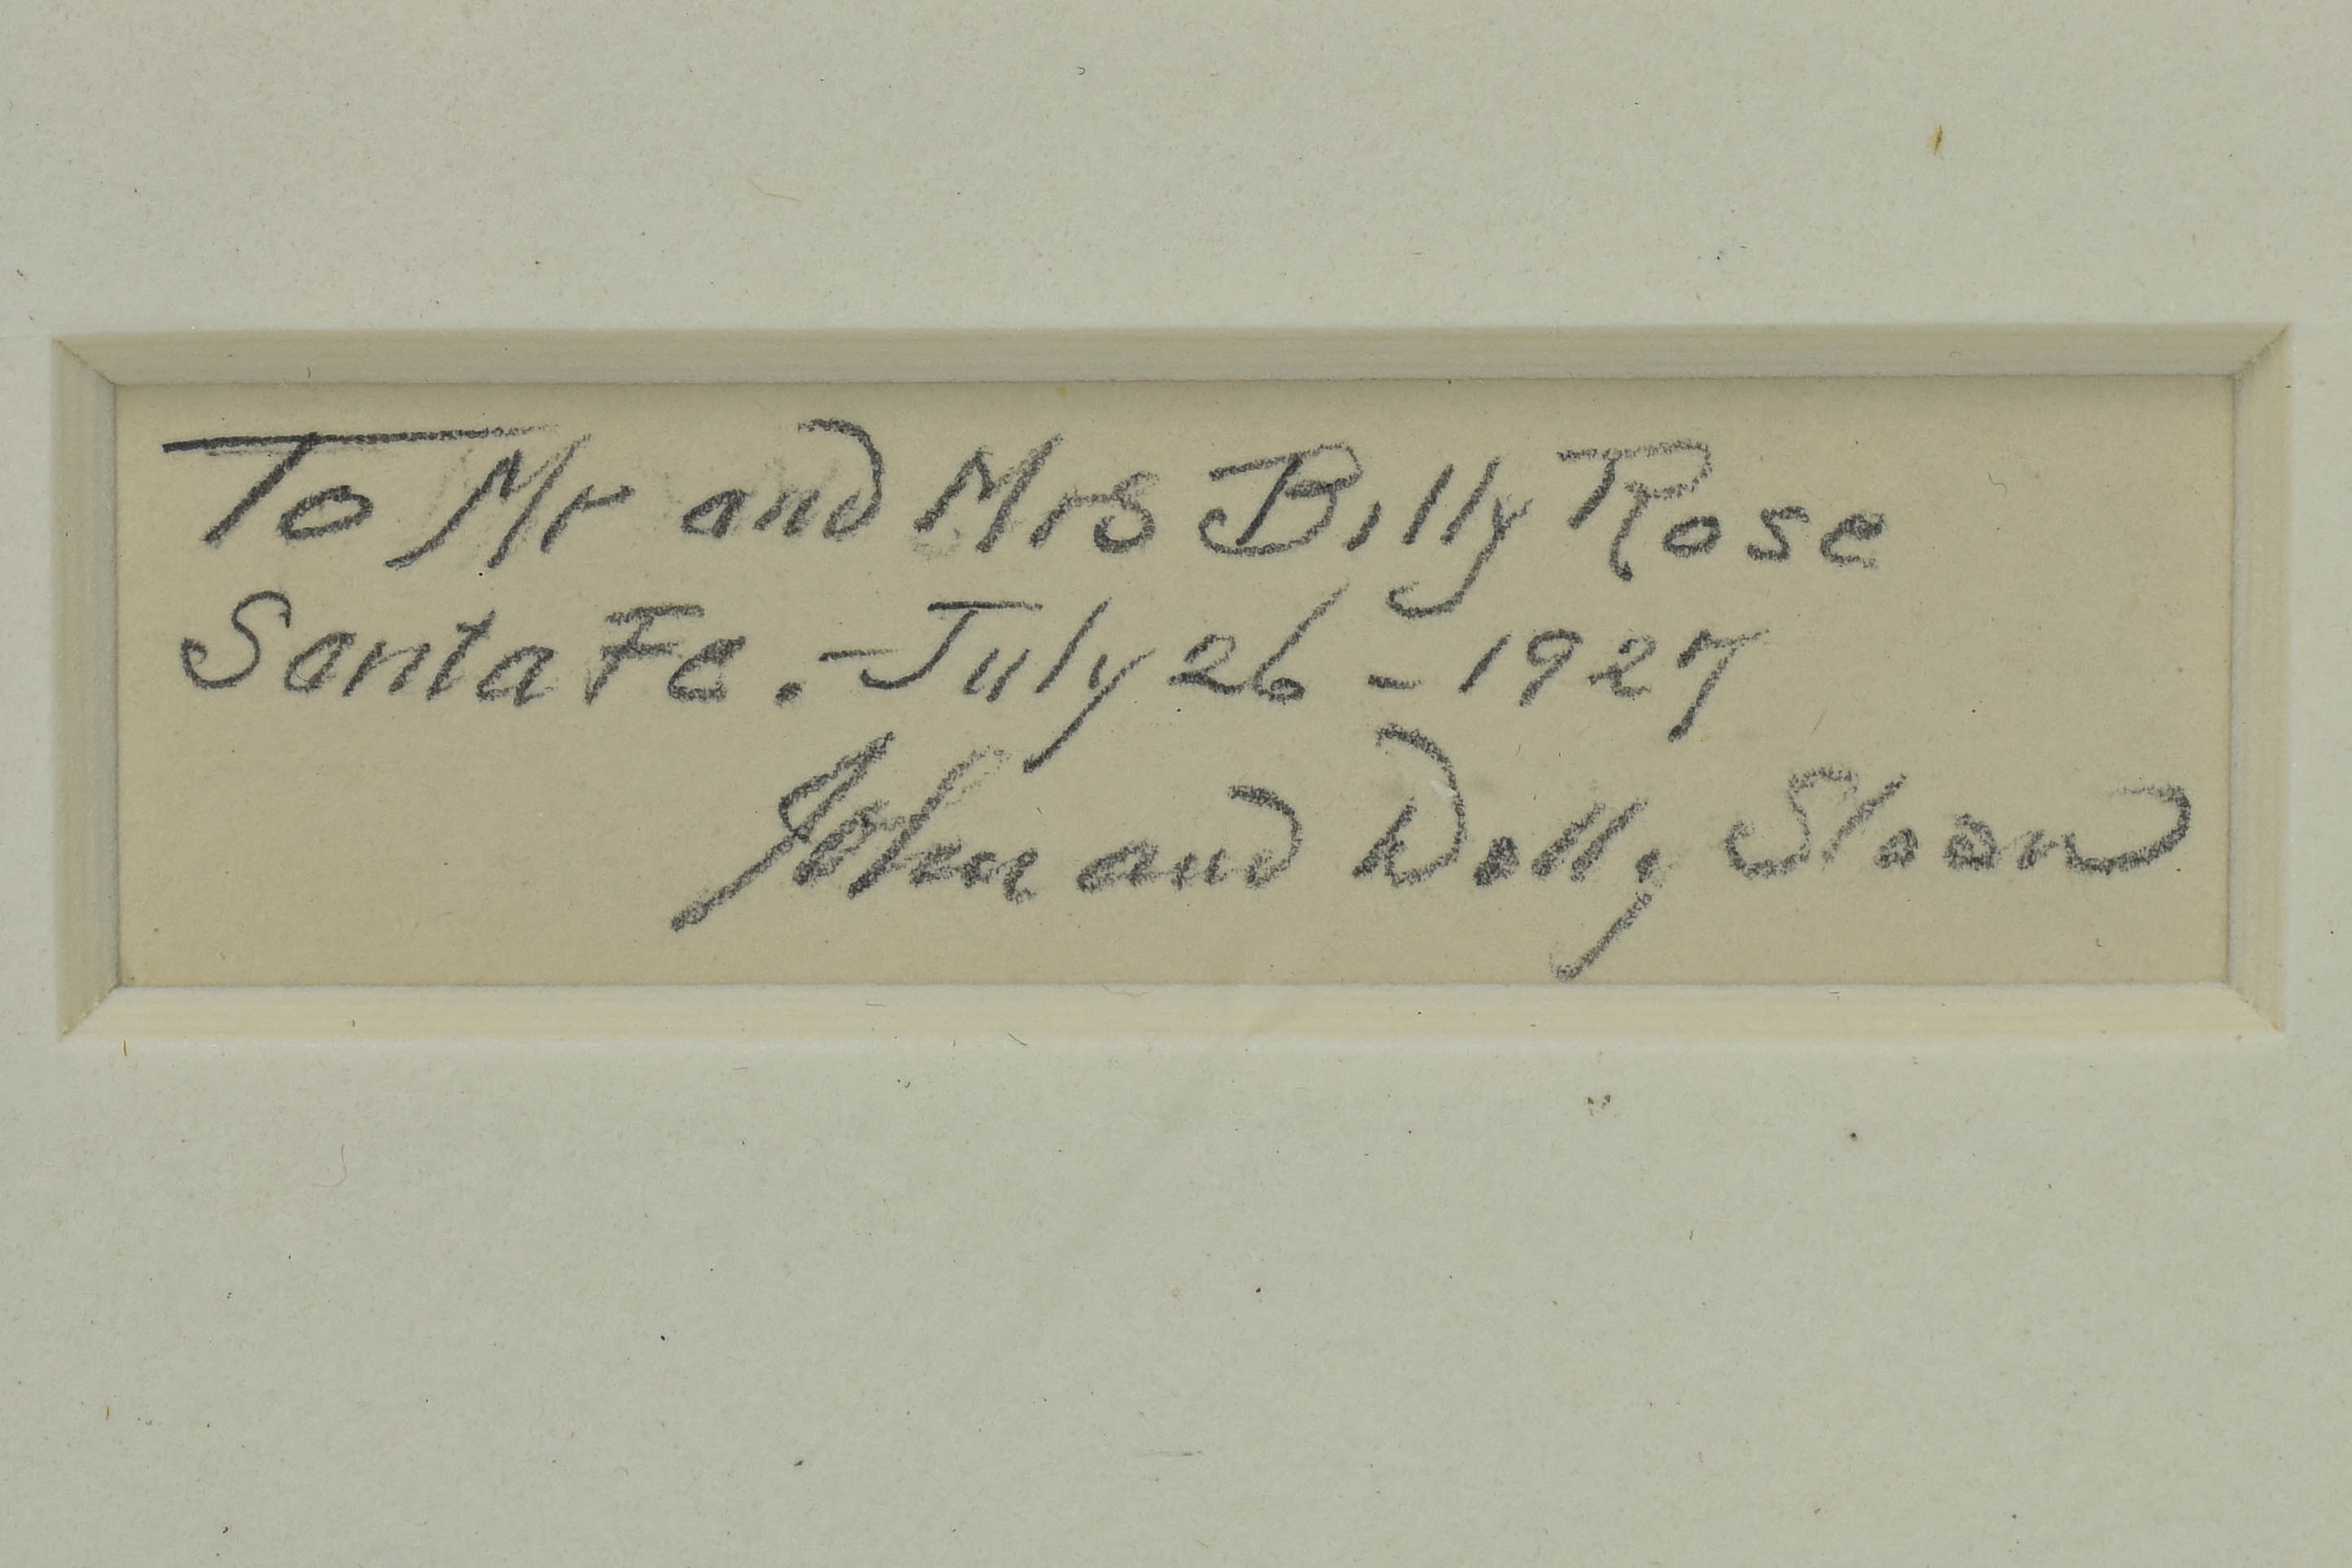 To Mr and Mrs Billy Rose
Santa Fe. - July 26 - 1927
John and Dolly Sloan